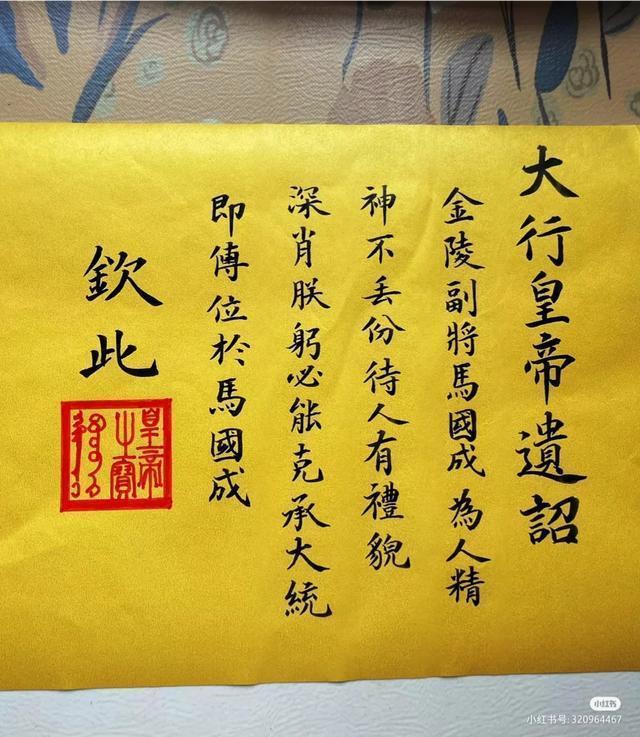 大行皇帝遺詔
金陵副將馬國成為人精
神不丢份待人有禮貌
深肖朕躬必能克承大統
即傳位於馬國成
欽此
皇帝之寶
小红书
小红书号: 320964467